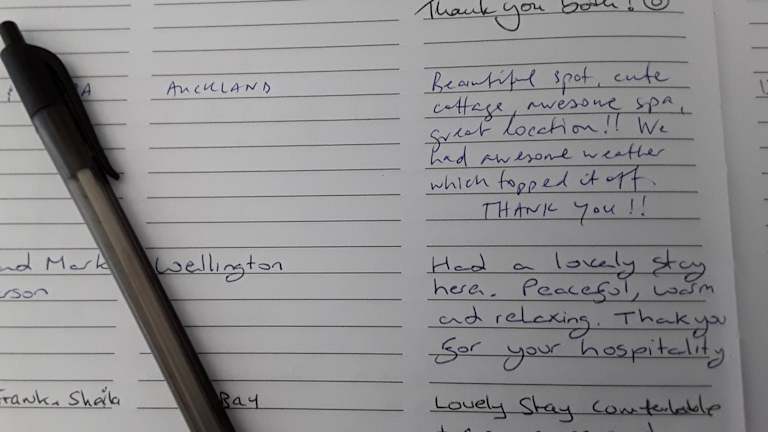 Thank you both! ☺
AUCKLAND Beautiful spot, cute
cottage, awesome spa,
great location!! We
had awesome weather
which topped it off.
THANK YOU!!
nd Mark Wellington Had a lovely stay
rson here. Peaceful, warm
and relaxing. Thak you
for your hospitality
Frank & Sheila Bay Lovely Stay